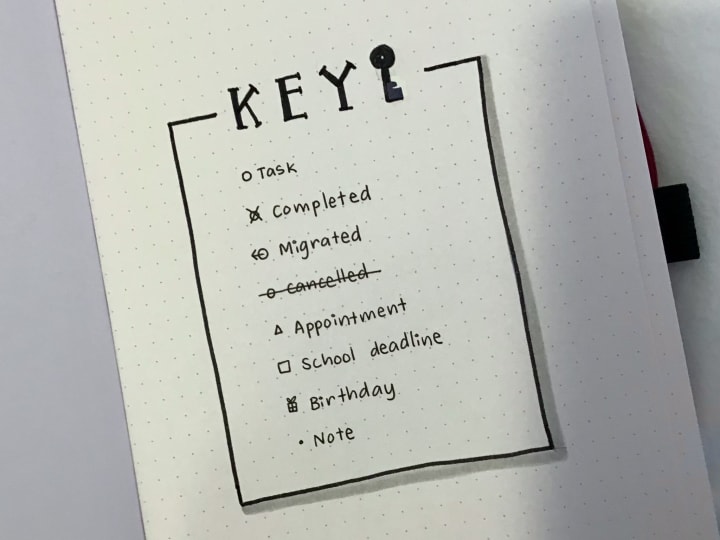 KEY
o Task
x Completed
<o Migrated
o cancelled
△ Appointment
□ School deadline
Birthday
• Note